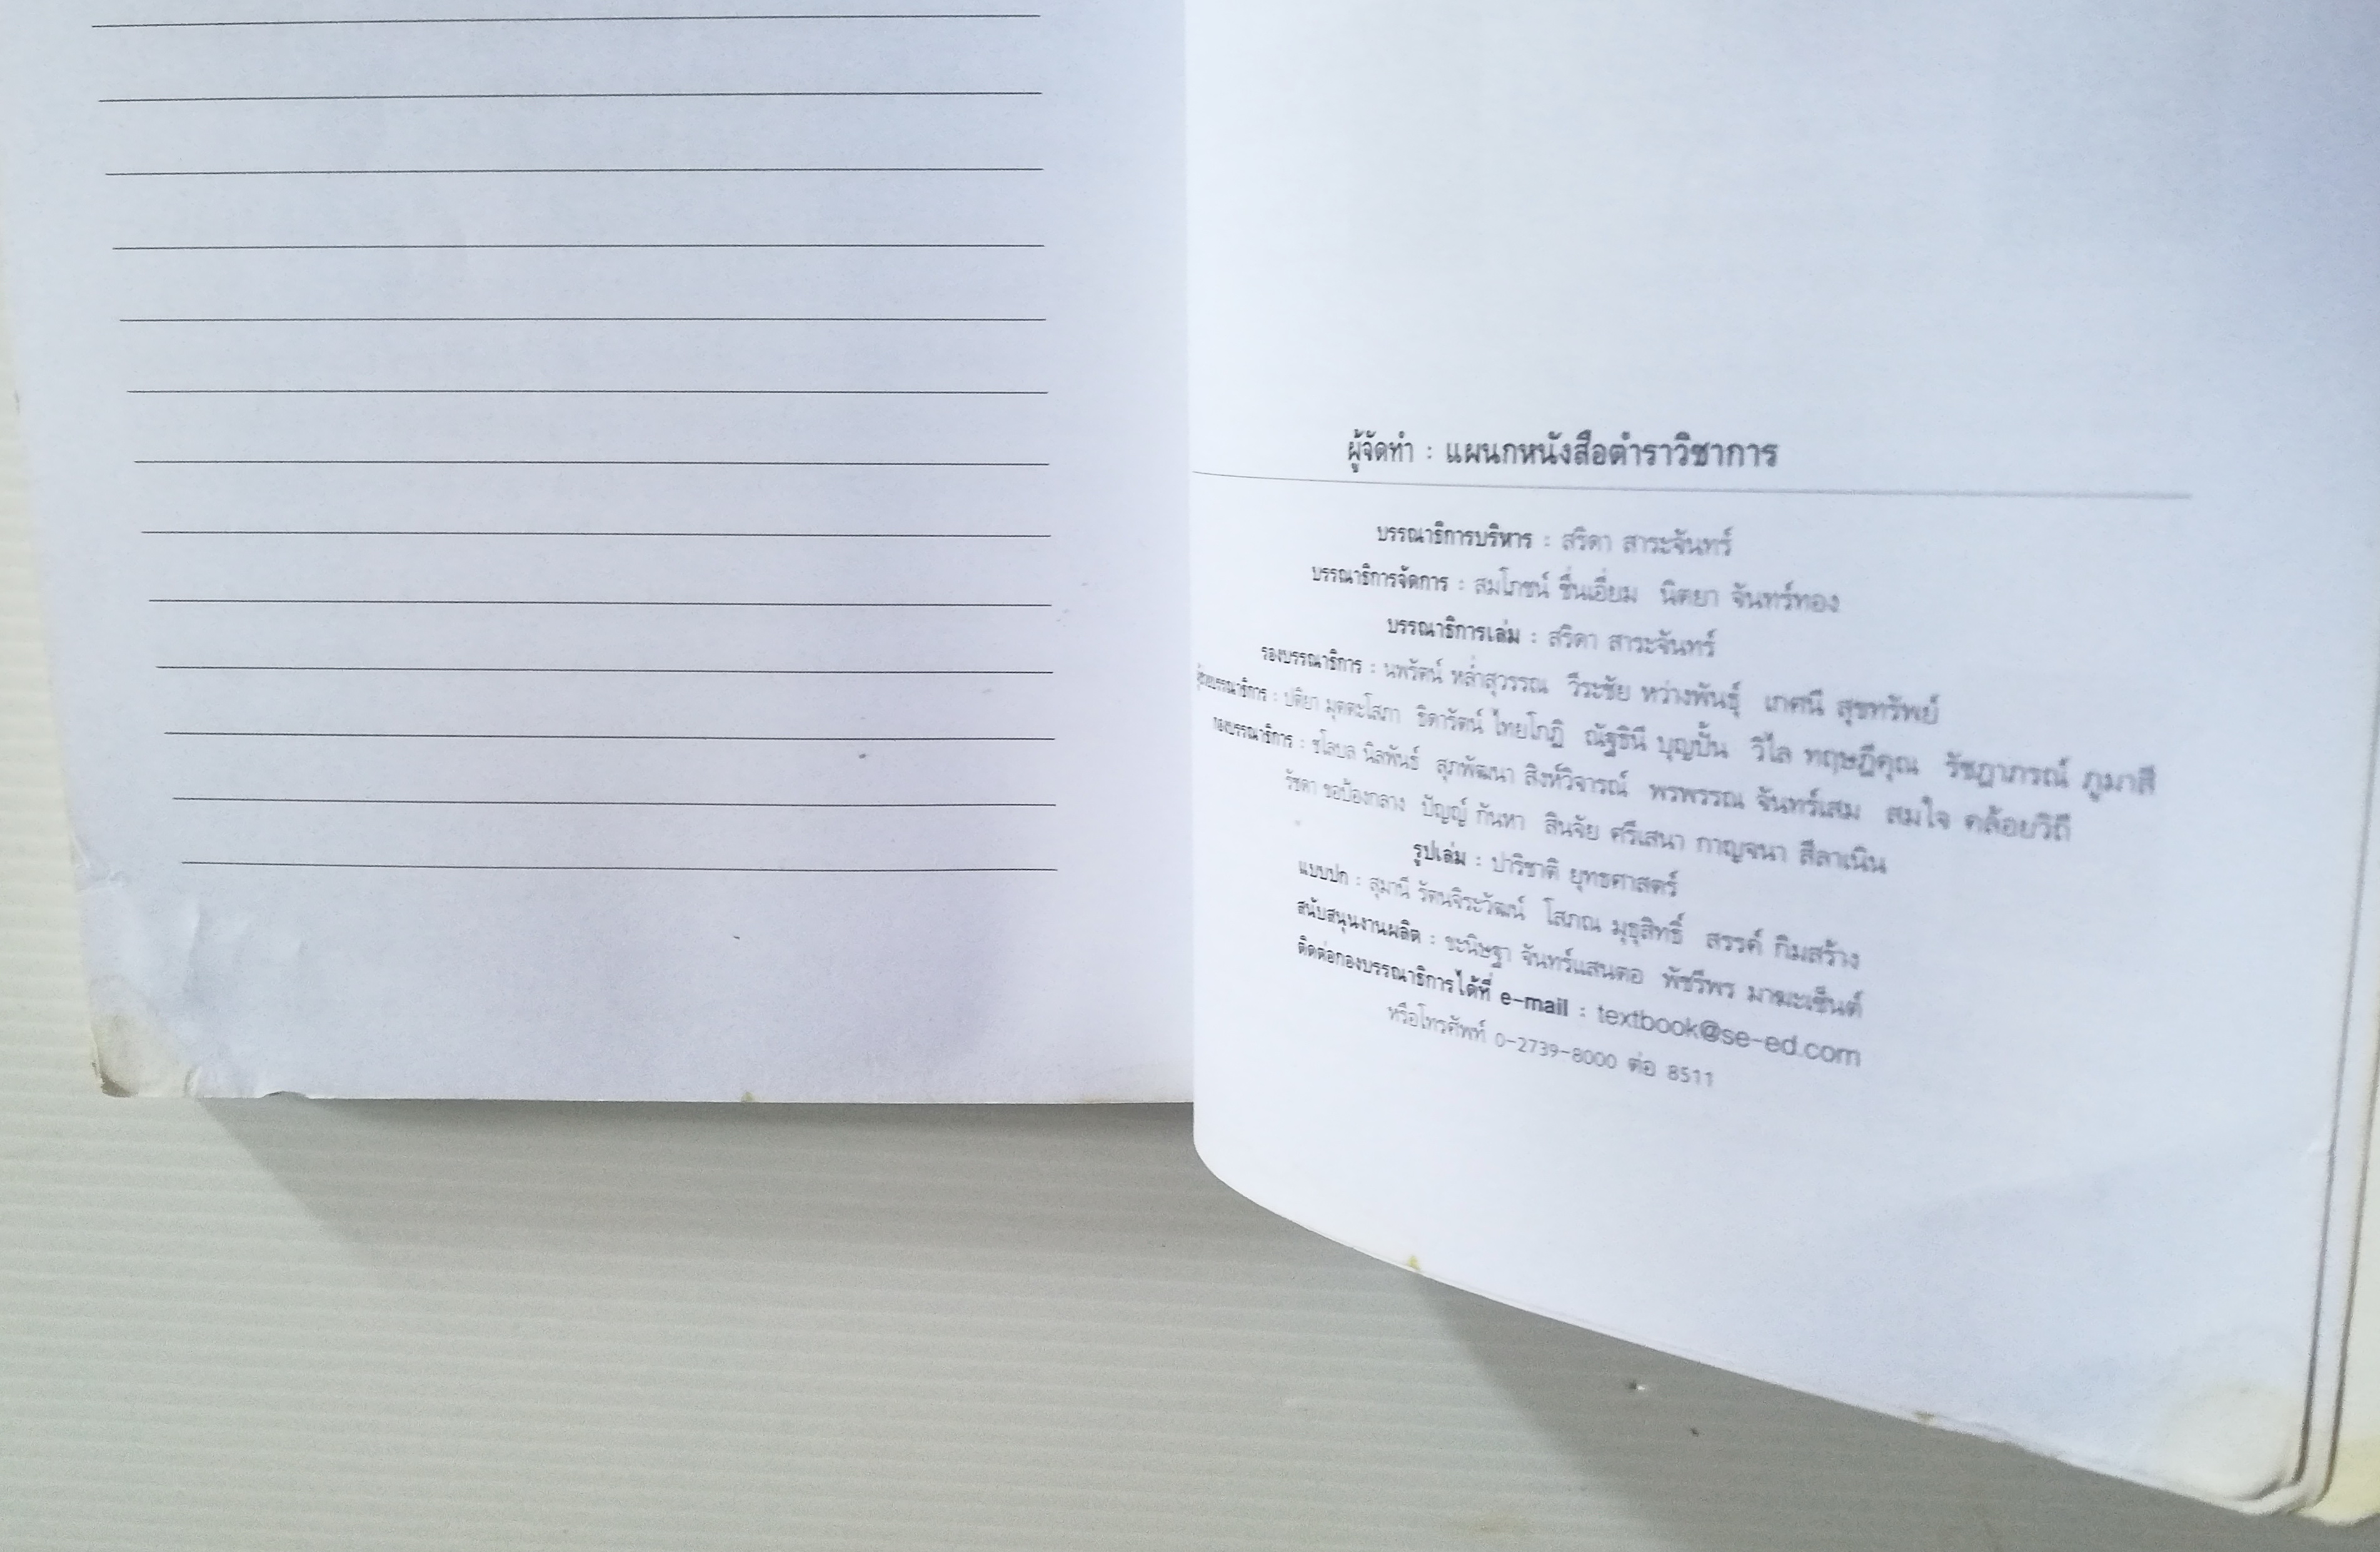 ผู้จัดทำ : แผนกหนังสือตำราวิชาการ
บรรณาธิการบริหาร : สริดา สาระจันทร์
บรรณาธิการจัดการ : สมโภชน์ ชื่นเอี่ยม นิตยา จันทร์ทอง
บรรณาธิการเล่ม : สริดา สาระจันทร์
รองบรรณาธิการ : นพรัตน์ หล่ำสุวรรณ วีระชัย หว่างพันธุ์ เกศนี สุขทรัพย์
ผู้ช่วยบรรณาธิการ : ปติยา มุตตะโสภา ธิดารัตน์ ไทยโกฏิ ณัฐธินี บุญปั้น วิไล ทฤษฎีคุณ รัชฎาภรณ์ ภูมาสี
กองบรรณาธิการ : ชโลบล นิลพันธ์ สุภพัฒนา สิงห์วิจารณ์ พรพรรณ จันทร์เสม สมใจ คล้อยวิถี
รัชดา ขอป้องกลาง ปัญญ์ กันหา สินจัย ศรีเสนา กาญจนา สีลาเนิน
รูปเล่ม : ปาริชาติ ยุทธศาสตร์
แบบปก : สุมานี รัตนจิระวัฒน์ โสภณ มุธุสิทธิ์ สรรค์ กิมสร้าง
สนับสนุนงานผลิต : ขะนิษฐา จันทร์แสนตอ พัชรีพร มาฆะเซ็นต์
ติดต่อกองบรรณาธิการได้ที่ e-mail : textbook@se-ed.com
หรือโทรศัพท์ 0-2739-8000 ต่อ 8511